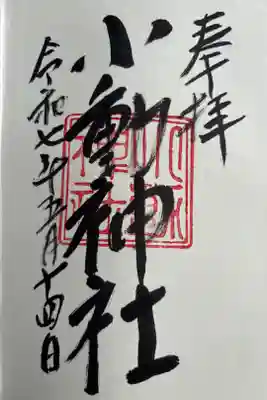 奉拝
小動神社
令和七年五月十四日